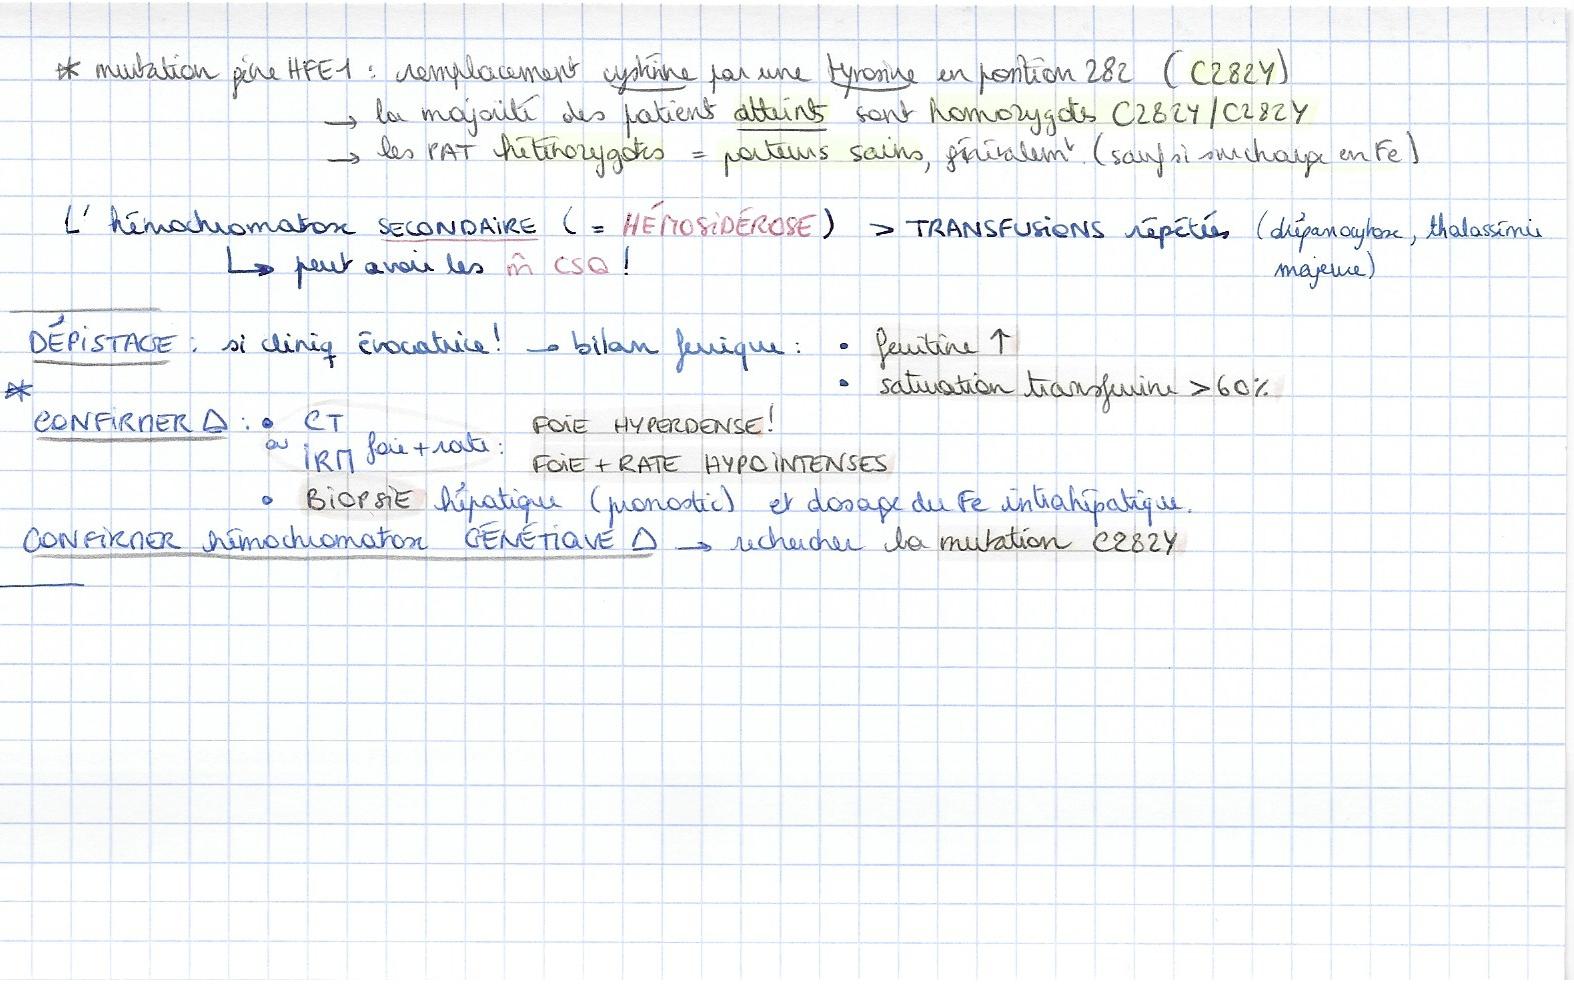 * mutation gène HFE1 : remplacement cystéine par une tyrosine en position 282 (C282Y)
→ la majorité des patients atteints sont homozygotes C282Y/C282Y
→ les PAT hétérozygotes = porteurs sains, généralemt. (sauf si surcharge en Fe)
L' hémochromatose SECONDAIRE (= HÉMOSIDÉROSE) > TRANSFUSIONS répétées (drépanocytose, thalassémie
majeure)
↳ peut avoir les m̂ CSQ !
DÉPISTAGE : si cliniq évocatrice ! → bilan ferrique : • ferritine ↑
• saturation transferrine > 60%
*
CONFIRMER Δ : • CT FOIE HYPERDENSE !
ou IRM foie + rate : FOIE + RATE HYPOINTENSES
• BIOPSIE hépatique (pronostic) et dosage du Fe intrahépatique.
CONFIRMER hémochromatose GÉNÉTIQUE Δ → rechercher la mutation C282Y